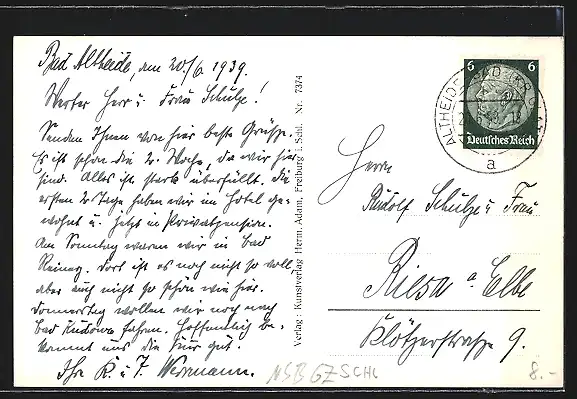 Bad Altheide, am 20/6 1939.
Werter Herr u. Frau Schulze!
Senden Ihnen von hier beste Grüße.
Es ist schon die 2. Woche, da wir hier
sind. Alles ist stark überfüllt. Die
ersten 2 Tage haben wir im Hotel ge-
wohnt u. jetzt in Privatpension.
Am Sonntag waren wir in Bad
Reinerz. Dort ist es noch nicht so voll,
aber auch nicht so schön wie hier.
Donnerstag wollen wir noch nach
Bad Kudowa fahren. Hoffentlich be-
kommt uns die Kur gut.
Ihr R. u. F.
Verlag: Kunstverlag Herm. Adam, Freiburg i. Schl. Nr. 7374
6 6
Deutsches Reich
ALTHEIDE BAD
a
Herrn
Rudolf Schulze u Frau
Riesa a Elbe
Klötzerstraße 9.
NSB GZ SCHL
8.-